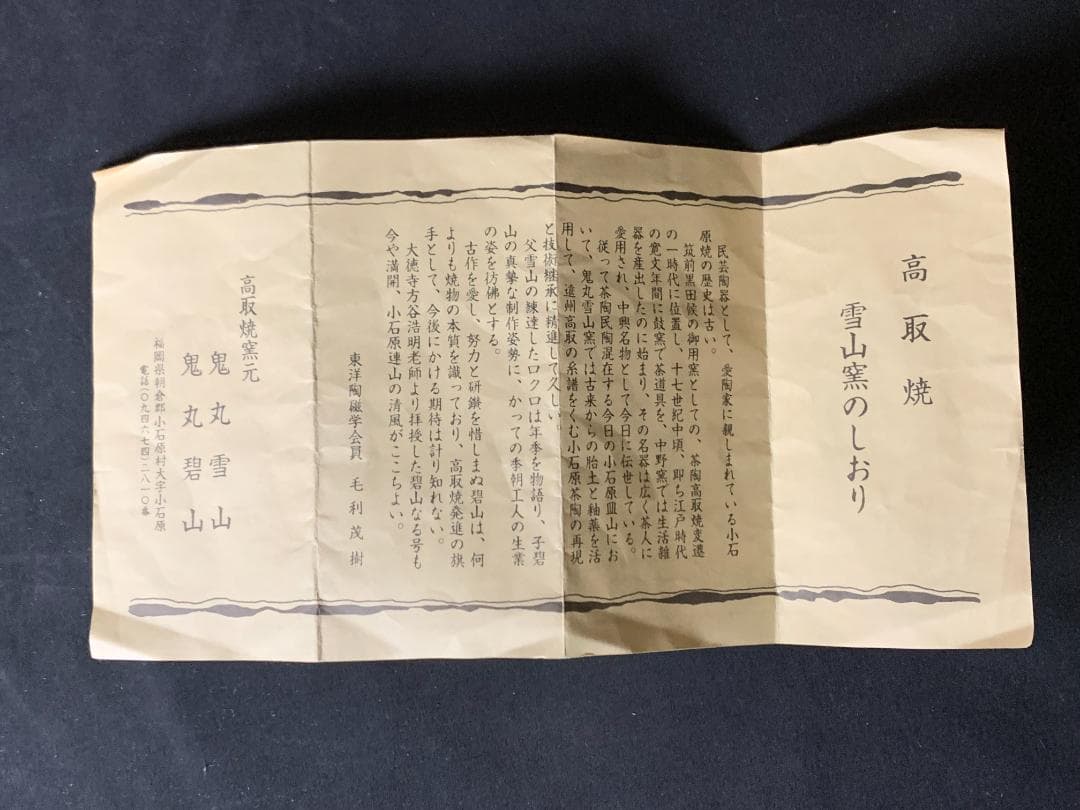 高取焼
雪山窯のしおり
民芸陶器として、愛陶家に親しまれている小石
原焼の歴史は古い。
筑前黒田候の御用窯としての、茶陶高取焼変遷
の一時代に位置し、十七世紀中頃、即ち江戸時代
の寛文年間に鼓窯で茶道具を、中野窯では生活雑
器を産出したのに始まり、その名器は広く茶人に
愛用され、中興名物として今日に伝世している。
従って茶陶民陶混在する今日の小石原皿山にお
いて、鬼丸雪山窯では古来からの胎土と釉薬を活
用して、遠州高取の系譜をくむ小石原茶陶の再現
と技術継承に精進して久しい。
父雪山の練達したロクロは年季を物語り、子碧
山の真摯な制作姿勢に、かつての李朝工人の生業
の姿を彷佛とする。
古作を愛し、努力と研鑚を惜しまぬ碧山は、何
よりも焼物の本質を識っており、高取焼発進の旗
手として、今後にかける期待は計り知れない。
大徳寺方谷浩明老師より拝授した碧山なる号も
今や満開、小石原連山の清風がここちよい。
東洋陶磁学会員 毛利茂樹
高取焼窯元
鬼丸雪山
鬼丸碧山
福岡県朝倉郡小石原村大字小石原
電話(〇九四六七四)二八一〇番